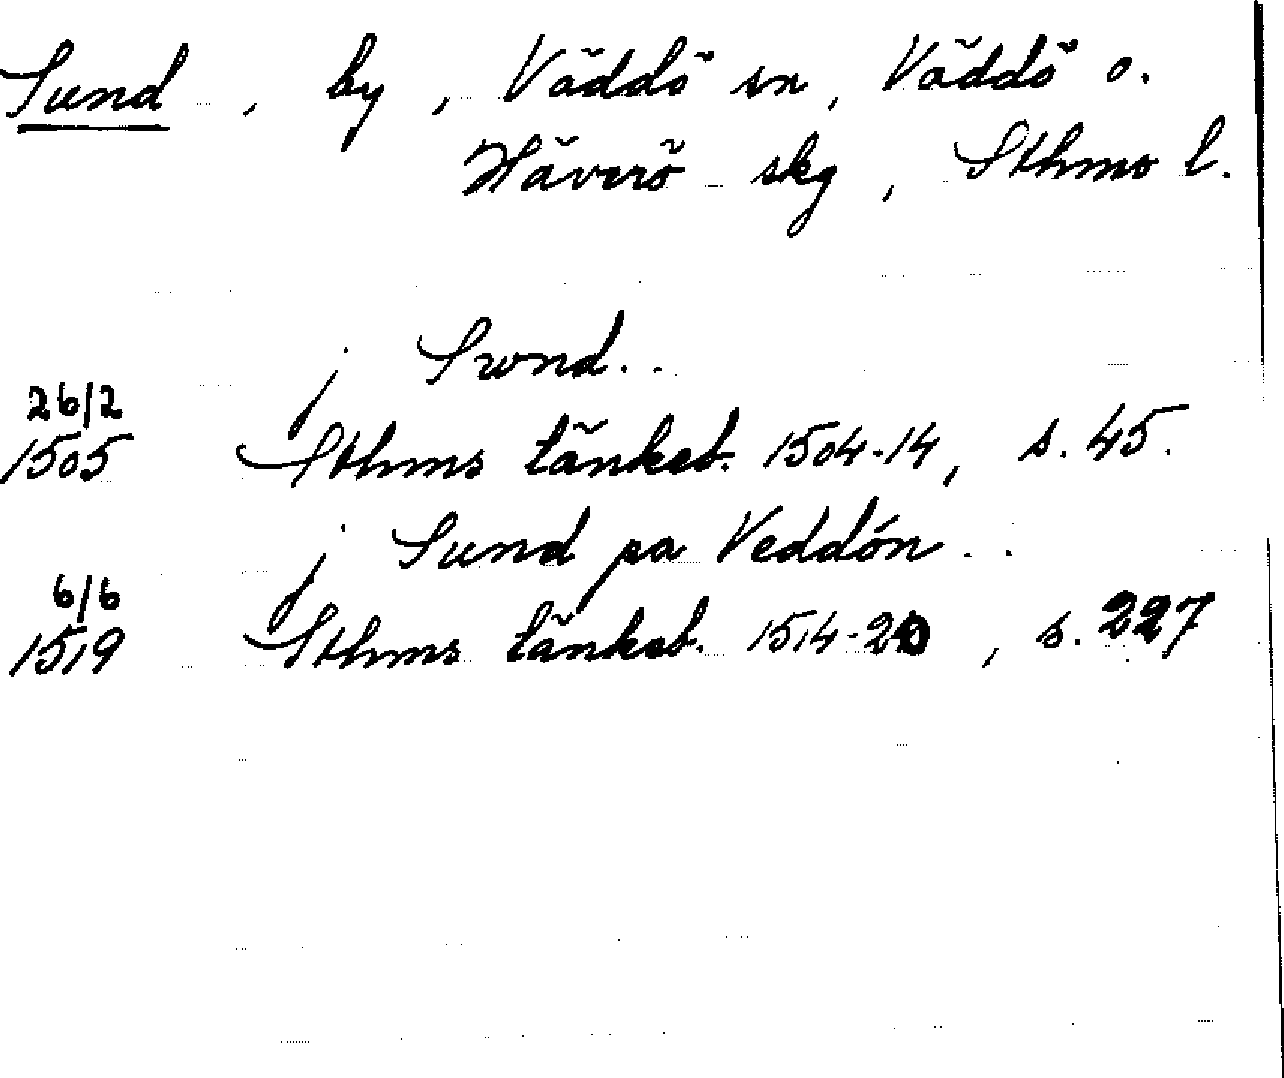 Sund, by, Väddö sn, Väddö o.
Häverö skg, Sthms l.
j Swnd..
26/2
1505 Sthms tänkeb. 1504-14, s. 45.
j Sund pa Veddón..
6/6
1519 Sthms tänkeb. 1514-20, s. 227